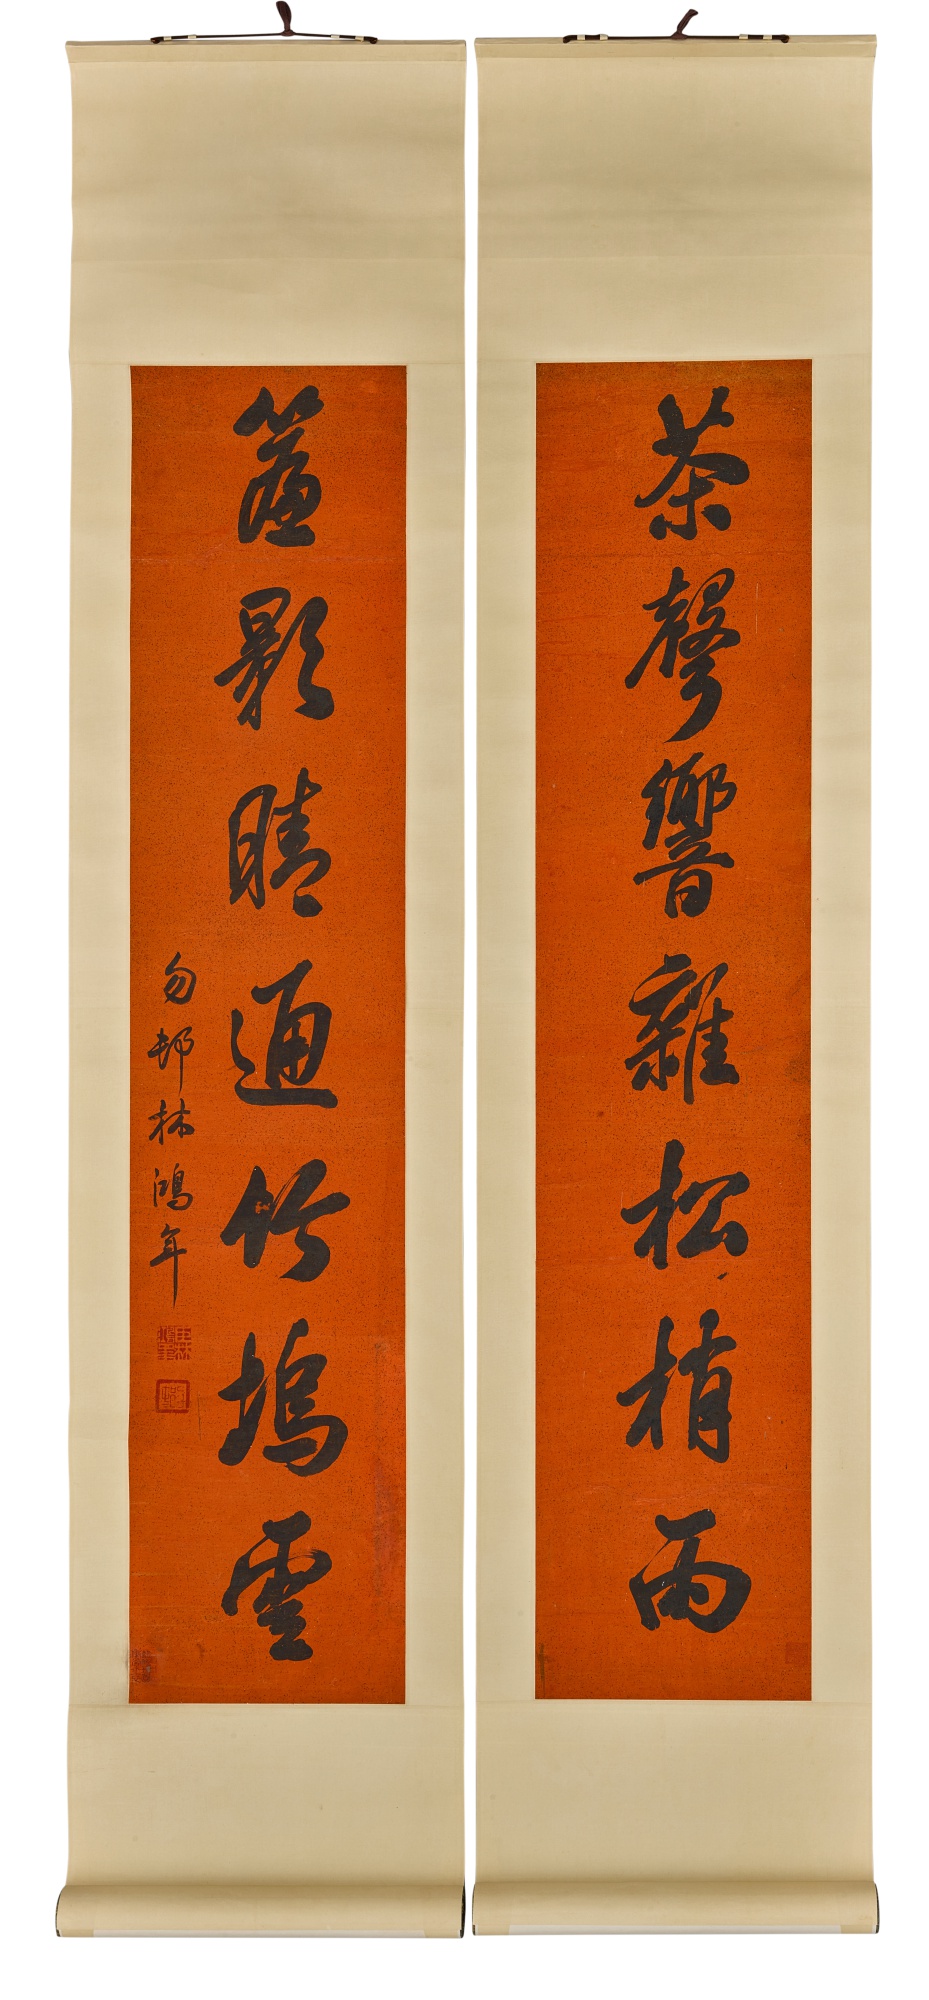 茶聲響雜松梢雨
簾影晴通竹塢雲
勿邨林鴻年